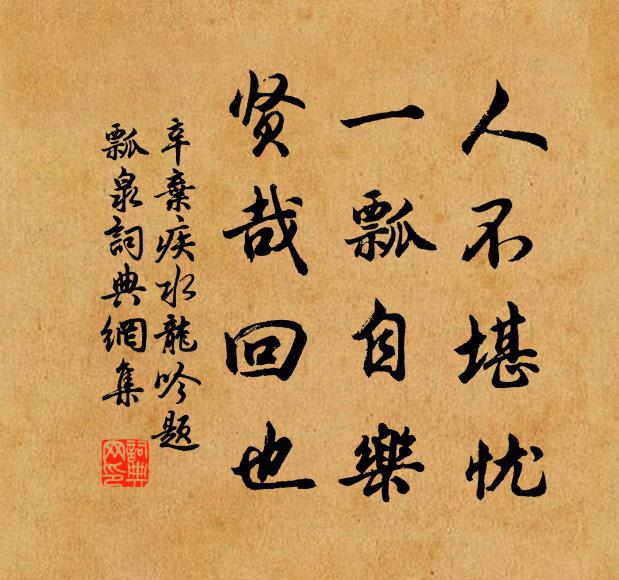 人不堪忧
一瓢自樂
贤哉回也
辛棄疾水龍吟题
瓢泉詞典網集
詞典
网印